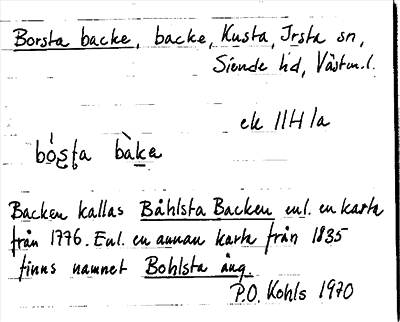 Borsta backe, backe, Kusta, Irsta sn,
Siende hd, Västm.l.
ek 11H 1a
bo̕s̨t̨a bàk̲e
Backen kallas Båhlsta Backen enl. en karta
från 1776. Enl. en annan karta från 1835
finns namnet Bohlsta äng.
P.O. Kohls 1970